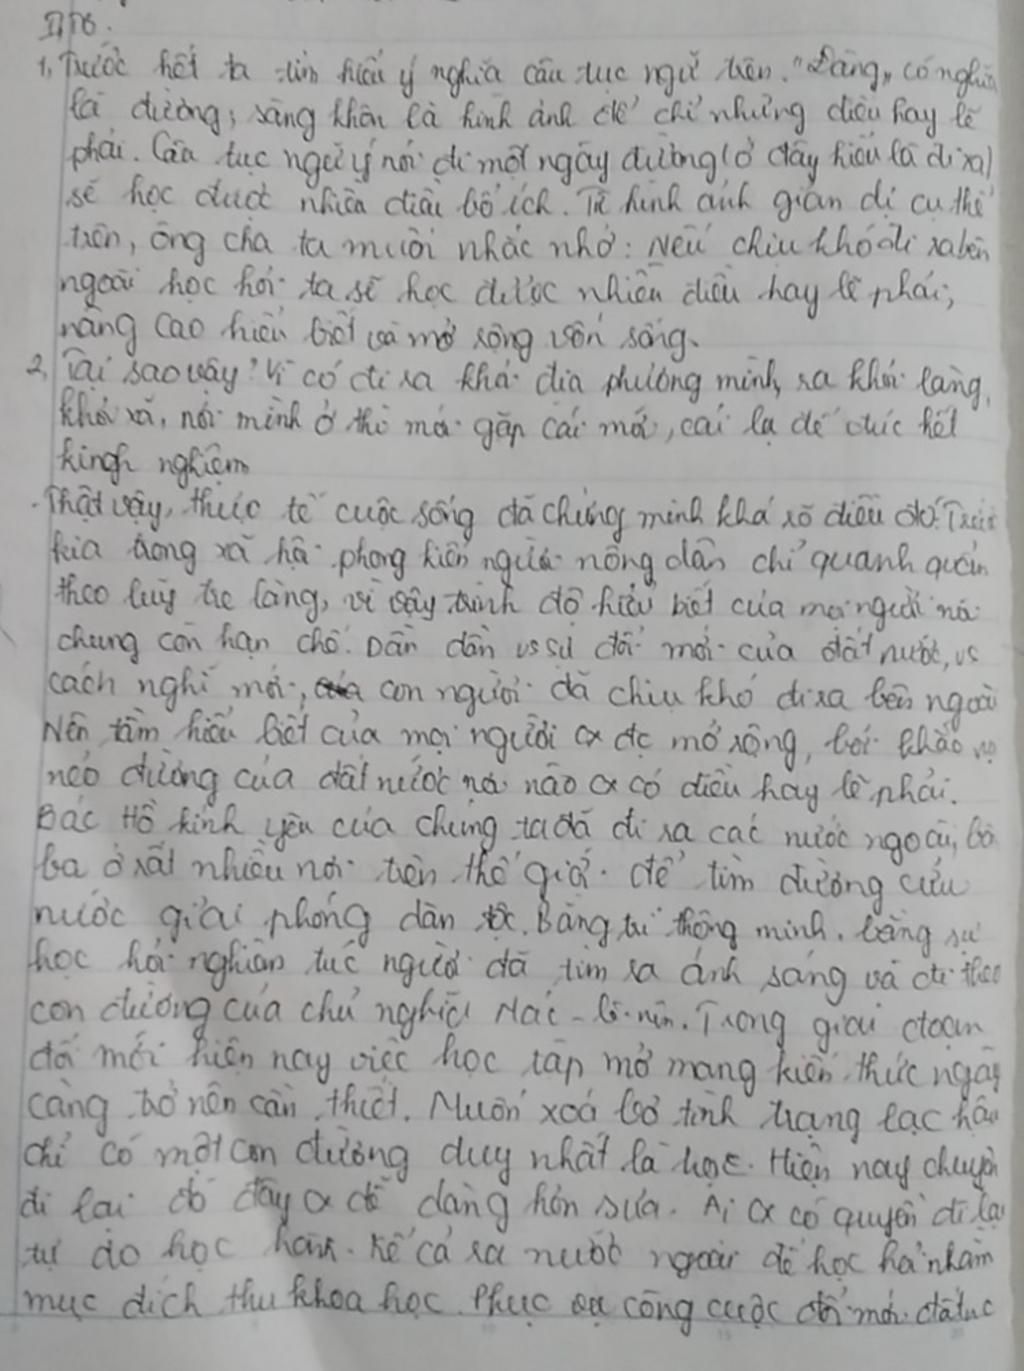 II, TB.
1, Trước hết ta tìm hiểu ý nghĩa câu tục ngữ trên. "Đàng" có nghĩa
là đường; sàng khôn là hình ảnh để chỉ những điều hay lẽ
phải. Câu tục ngữ ý nói đi một ngày đường (ở đây hiểu là đi xa)
sẽ học được nhiều điều bổ ích. Từ hình ảnh giản dị cụ thể
trên, ông cha ta muốn nhắc nhở: Nếu chịu khó đi xa bên
ngoài học hỏi ta sẽ học được nhiều điều hay lẽ phải,
nâng cao hiểu biết và mở rộng vốn sống.
2, Tại sao vậy? Vì có đi ra khỏi địa phương mình, ra khỏi làng,
khỏi xã, nơi mình ở thì mới gặp cái mới, cái lạ để đúc kết
kingh nghiệm
- Thật vậy, thực tế cuộc sống đã chứng minh khá rõ điều đó. Trước
kia trong xã hội phong kiến người nông dân chỉ quanh quẩn
theo lũy tre làng, vì vậy trình độ hiểu biết của mọi người nói
chung còn hạn chế. Dần dần vs sự đổi mới của đất nước, vs
cách nghĩ mới, con người đã chịu khó đi xa bên ngoài
Nên tầm hiểu biết của mọi người cx đc mở rộng, bởi khắp mọi
nẻo đường của đất nước nơi nào cx có điều hay lẽ phải.
Bác Hồ kính yêu của chúng ta đã đi ra các nước ngoài, bôn
ba ở rất nhiều nơi trên thế giới để tìm đường cứu
nước giải phóng dân tộc. Bằng trí thông minh, bằng sự
học hỏi nghiêm túc người đã tìm ra ánh sáng và đi theo
con đường của chủ nghĩa Mác - Lê-nin. Trong giai đoạn
đổi mới hiện nay việc học tập mở mang kiến thức ngày
càng trở nên cần thiết. Muốn xoá bỏ tình trạng lạc hậu
chỉ có một con đường duy nhất là học. Hiện nay chuyện
đi lại đó đây cx dễ dàng hơn xưa. Ai cx có quyền đi lại
tự do học hành. Kể cả ra nước ngoài để học hỏi nhằm
mục đích thu khoa học. Phục vụ công cuộc đổi mới đất nước